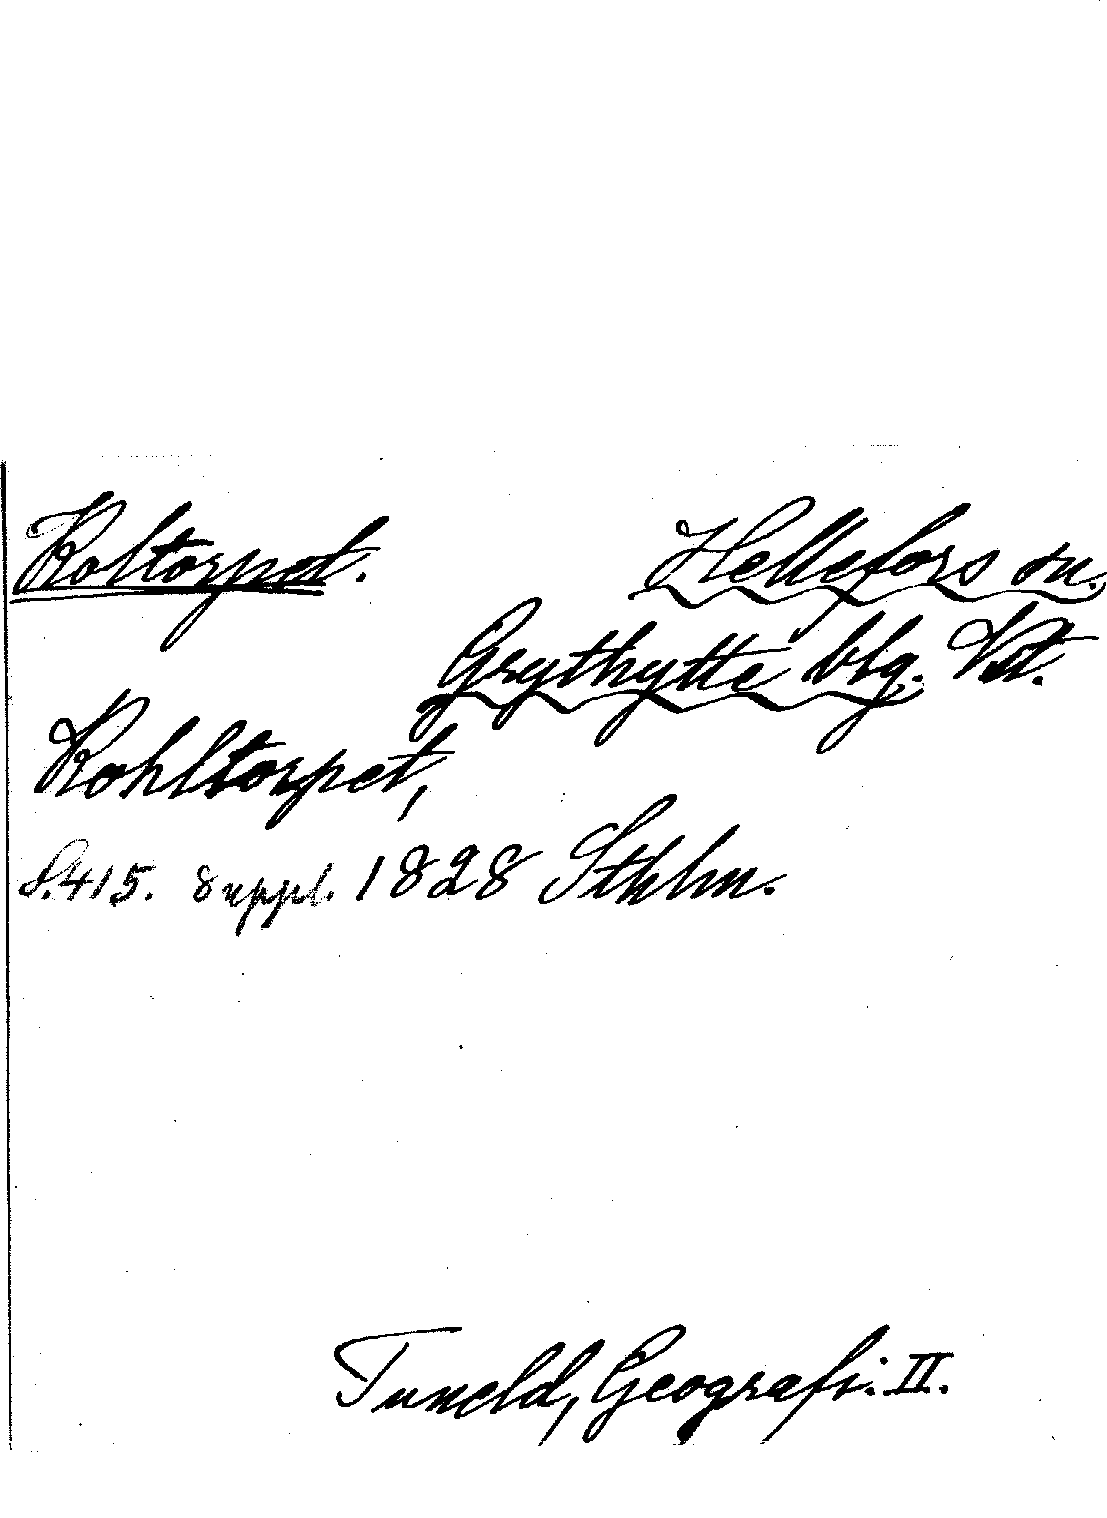 Koltorpet. Hellefors sn.
Grythytte blg. Vstm.
Kohltorpet,
S. 415. Suppl. 1828 Sthlm.
Tuneld, Geografi. II.